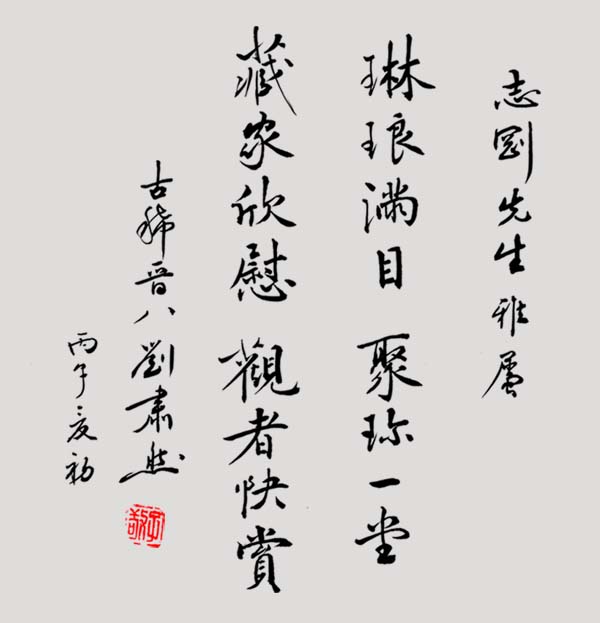 志剛先生雅屬
琳琅滿目 聚珎一堂
藏家欣慰 觀者快賞
古稀晉八劉肅然
丙午夏初